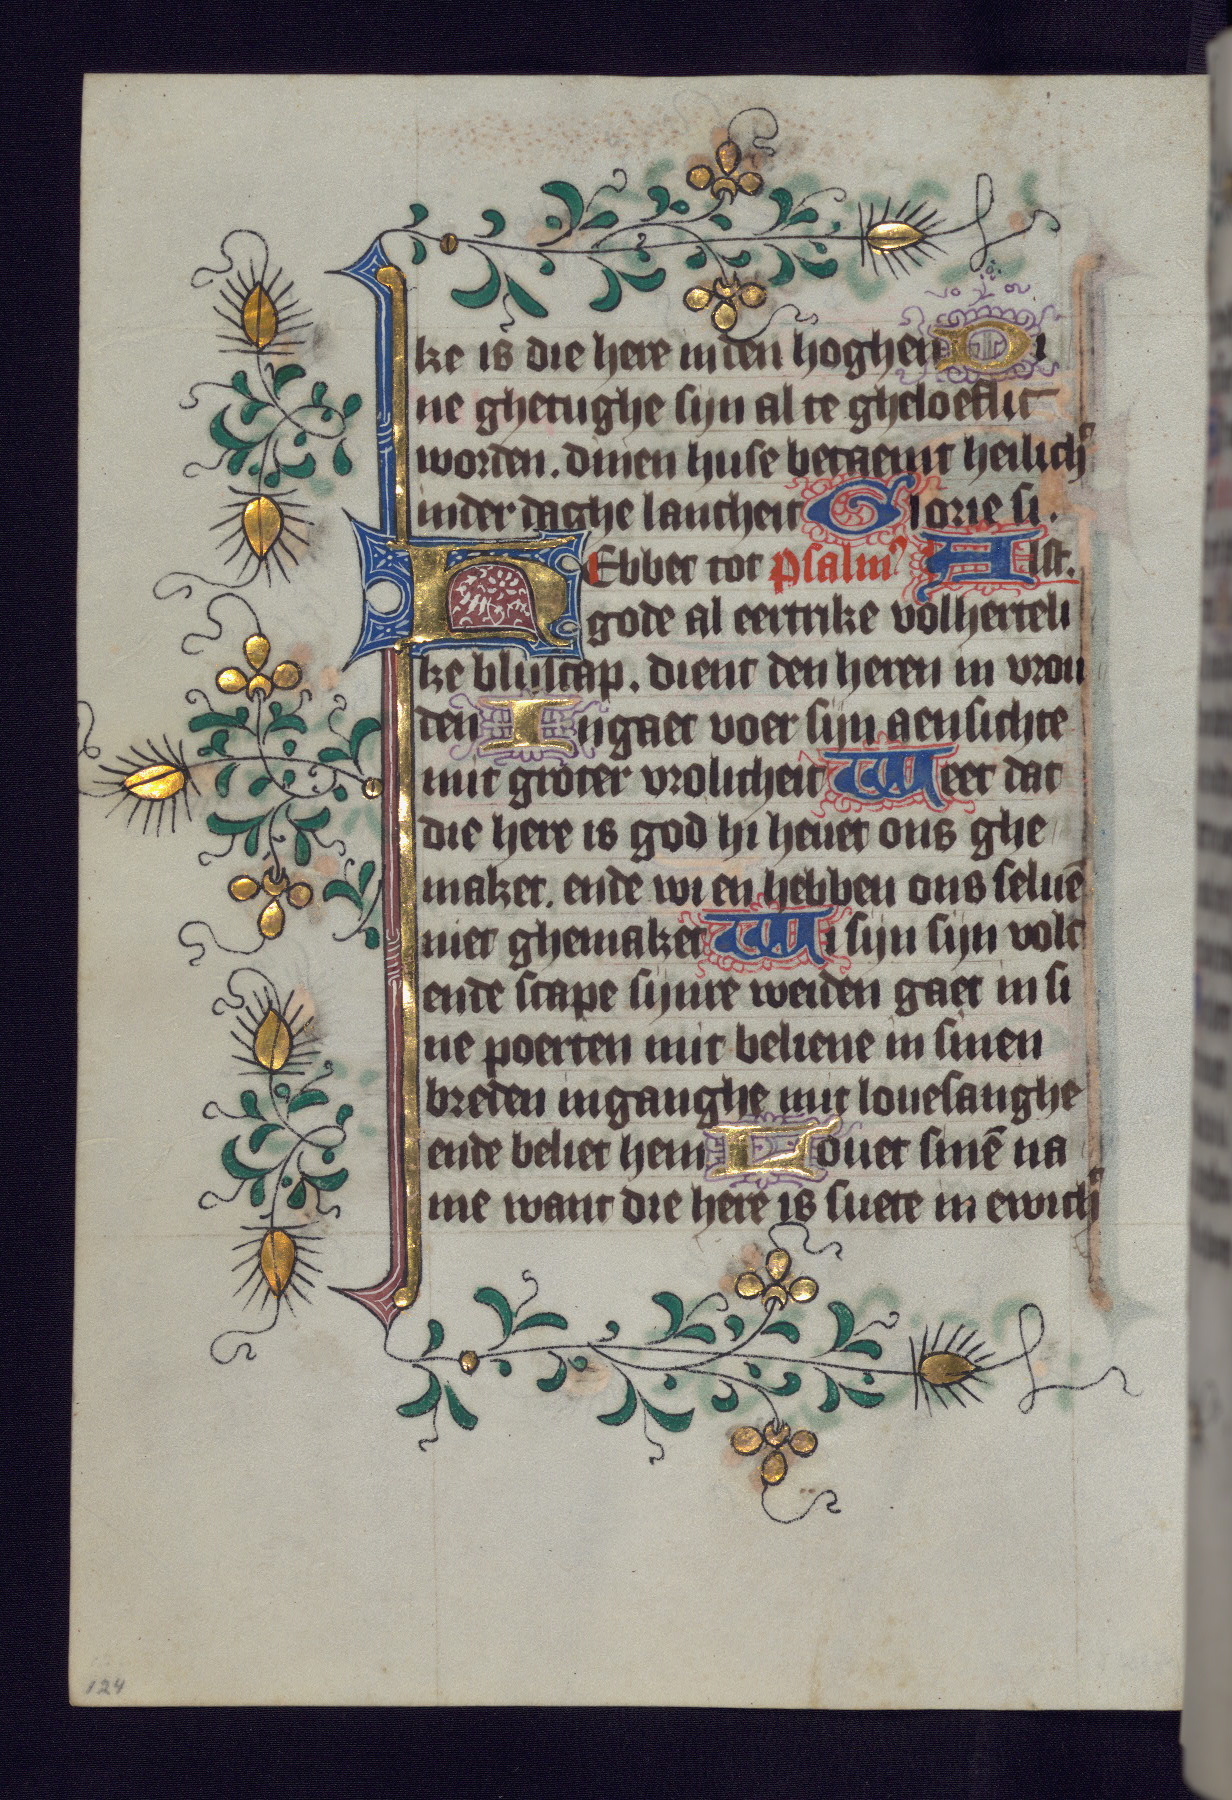 ke is die here inden hoghen Di
ne ghetughe sijn al te gheloeflic
worden. dinen huse betaemt heilich⁹
inder daghe lancheit Glorie si.
HEbbet tot psalm⁹ Alst.
gode al eertrike volherteli
ke blijscap. dient den heren in vrou
den Ingaet voer sijn aensichte
mit groter vrolicheit Weet dat
die here is god hi heuet ons ghe
maket. ende wi en hebben ons seluē
niet ghemaket Wi sijn sijn volc
ende scape sijnre weiden gaet in si
ne poerten mit beliene in sinen
breden inganghe mit louesanghe
ende beliet hem Louet sinē na
me want die here is suete in ewich⁹
124